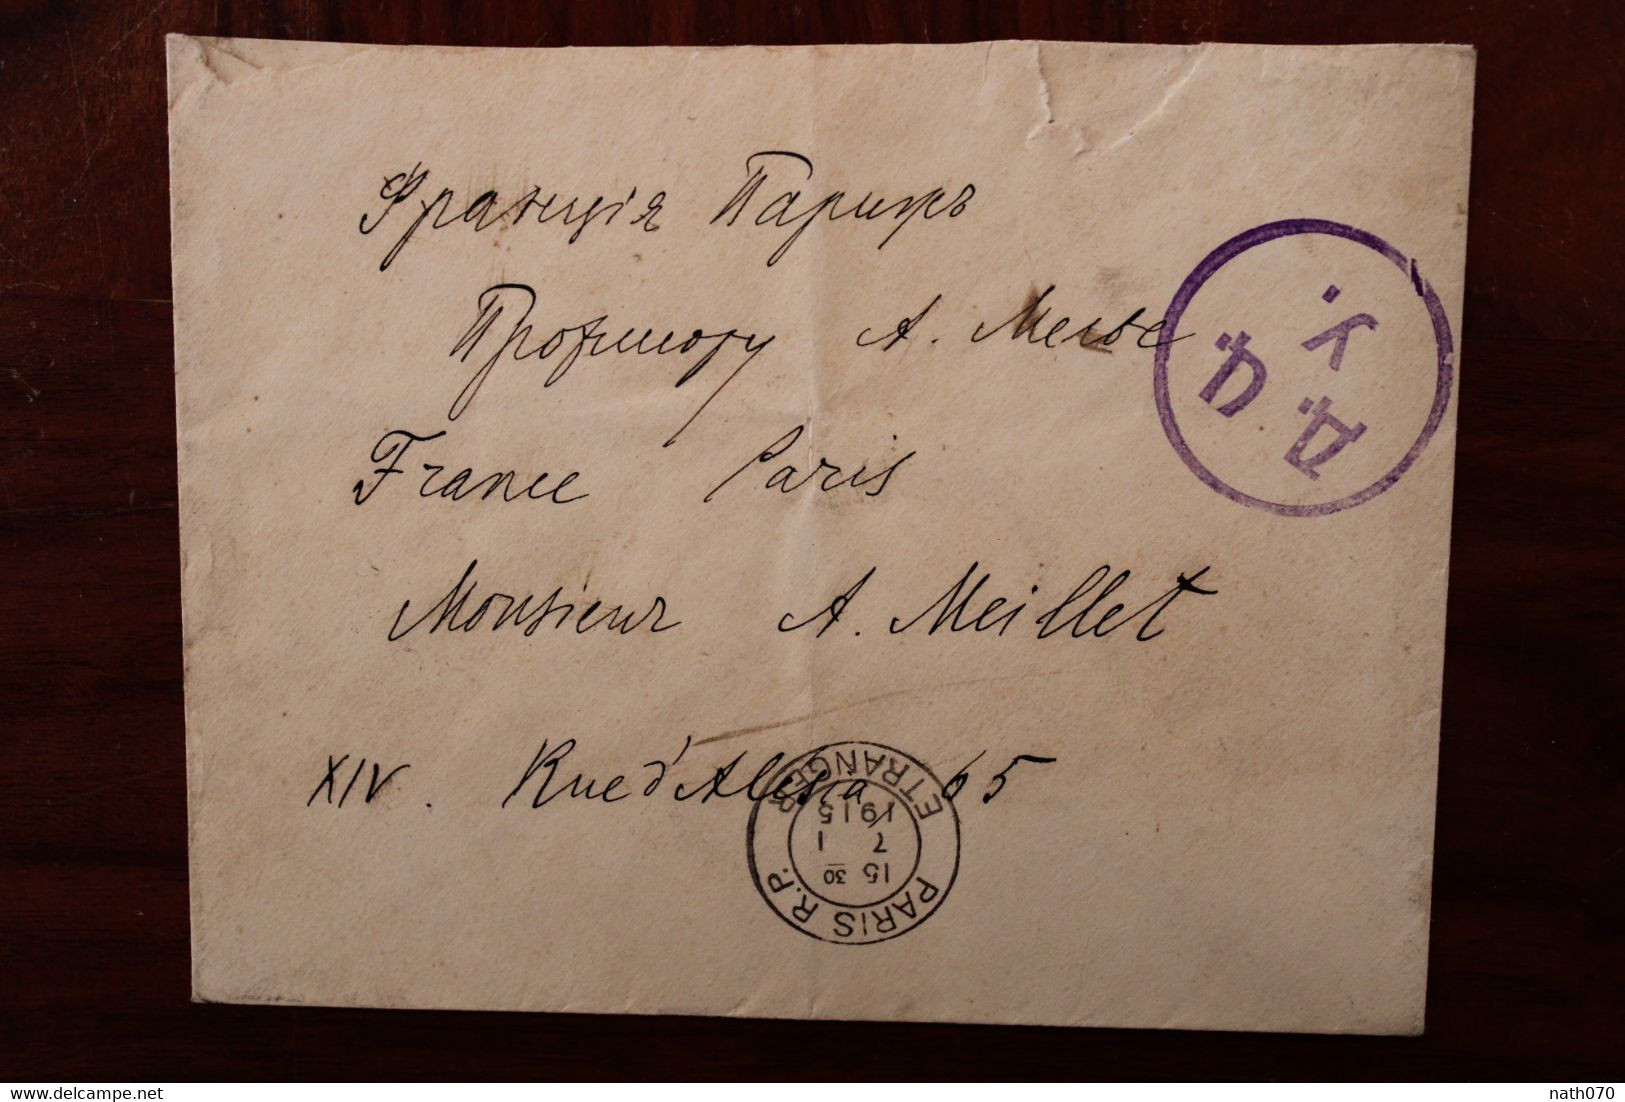 Франція Парижъ
Профессору А. Мелье
France Paris
Monsieur A. Meillet
XIV. Rue d'Alesia 65
PARIS R.P. ETRANGER
15 30
7 1
1915
Д. Ц. К.
nath070
delcampe.net